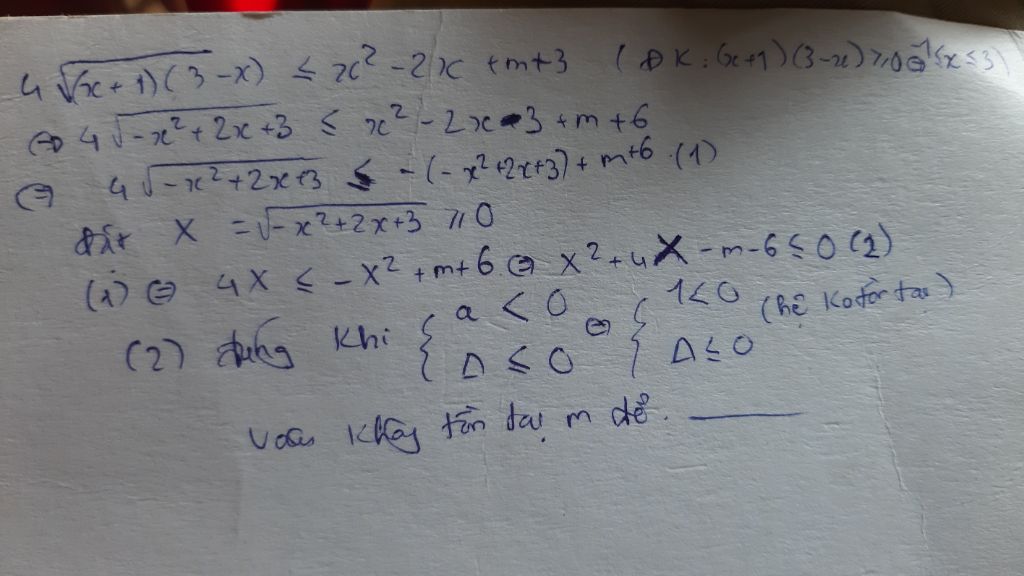 4√(x+1)(3-x) ≤ x² - 2x + m+3 (ĐK: (x+1)(3-x) ≥ 0 ⇔ -1 ≤ x ≤ 3)
⇔ 4√-x² + 2x + 3 ≤ x² - 2x - 3 + m + 6
⇔ 4√-x² + 2x + 3 ≤ -(-x² + 2x + 3) + m + 6 (1)
đặt X = √-x² + 2x + 3 ≥ 0
(1) ⇔ 4X ≤ -X² + m + 6 ⇔ X² + 4X - m - 6 ≤ 0 (2)
(2) đúng khi { a < 0 ⇔ { 1 < 0 (hệ ko tồn tại)
Δ ≤ 0 Δ ≤ 0
vậy không tồn tại m để.